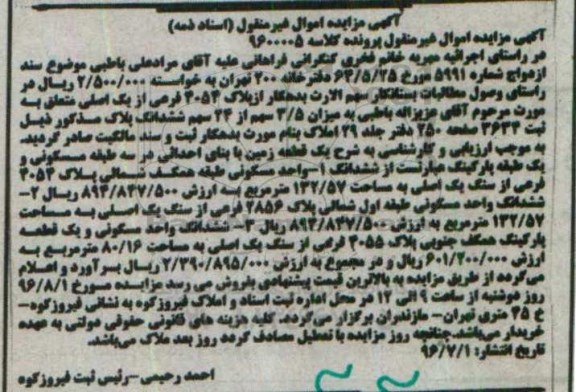 آگهی مزایده اموال غیرمنقول (اسناد ذمه)
آگهی مزایده اموال غیرمنقول پرونده کلاسه ۹۶۰۰۰۰۵
در راستای اجرائیه مهریه خانم فخری کنگرانی فراهانی علیه آقای مرادعلی باطبی موضوع سند
ازدواج شماره ۵۹۹۱ مورخ ۶۳/۵/۲۵ دفترخانه ۲۰۰ تهران به خواسته ۲/۵۰۰/۰۰۰ ریال در
راستای وصول مطالبات بستانکار سهم الارث بدهکار ازپلاک ۳۰۵۳ فرعی از یک اصلی متعلق به
مورث مرحوم آقای عزیزاله باطبی به میزان ۳/۵ سهم از ۲۴ سهم ششدانگ پلاک مذکور ذیل
ثبت ۳۶۳۳ صفحه ۲۵۰ دفتر جلد ۲۹ املاک بنام مورث بدهکار ثبت و سند مالکیت صادر گردید.
به موجب ارزیابی و کارشناسی به شرح یک قطعه زمین با بنای احداثی در سه طبقه مسکونی و
یک طبقه پارکینگ عبارتست از ششدانگ ۱-واحد مسکونی طبقه همکف شمالی پلاک ۳۰۵۳
فرعی از سنگ یک اصلی به مساحت ۱۳۲/۵۷ مترمربع به ارزش ۸۹۴/۸۴۷/۵۰۰ ریال ۲-
ششدانگ واحد مسکونی طبقه اول شمالی پلاک ۲۸۵۶ فرعی از سنگ یک اصلی به مساحت
۱۳۲/۵۷ مترمربع به ارزش ۸۹۴/۸۴۷/۵۰۰ ریال ۳- ششدانگ واحد مسکونی و یک قطعه
پارکینگ همکف جنوبی پلاک ۳۰۵۵ فرعی از سنگ یک اصلی به مساحت ۸۰/۱۶ مترمربع به
ارزش ۶۰۱/۲۰۰/۰۰۰ ریال و در مجموع به ارزش ۲/۳۹۰/۸۹۵/۰۰۰ ریال برآورد و اعلام
می‌گردد از طریق مزایده به بالاترین قیمت پیشنهادی بفروش می رسد مزایده مورخ ۹۶/۸/۱
روز دوشنبه از ساعت ۹ الی ۱۲ در محل اداره ثبت اسناد و املاک فیروزکوه به نشانی فیروزکوه-
خ ۴۵ متری تهران- مازندران برگزار می‌گردد. کلیه هزینه های قانونی حقوقی دولتی به عهده
خریدار می‌باشد.چنانچه روز مزایده با تعطیل مصادف گردد روز بعد ملاک می‌باشد.
تاریخ انتشار: ۹۶/۷/۱
احمد رحیمی-رئیس ثبت فیروزکوه